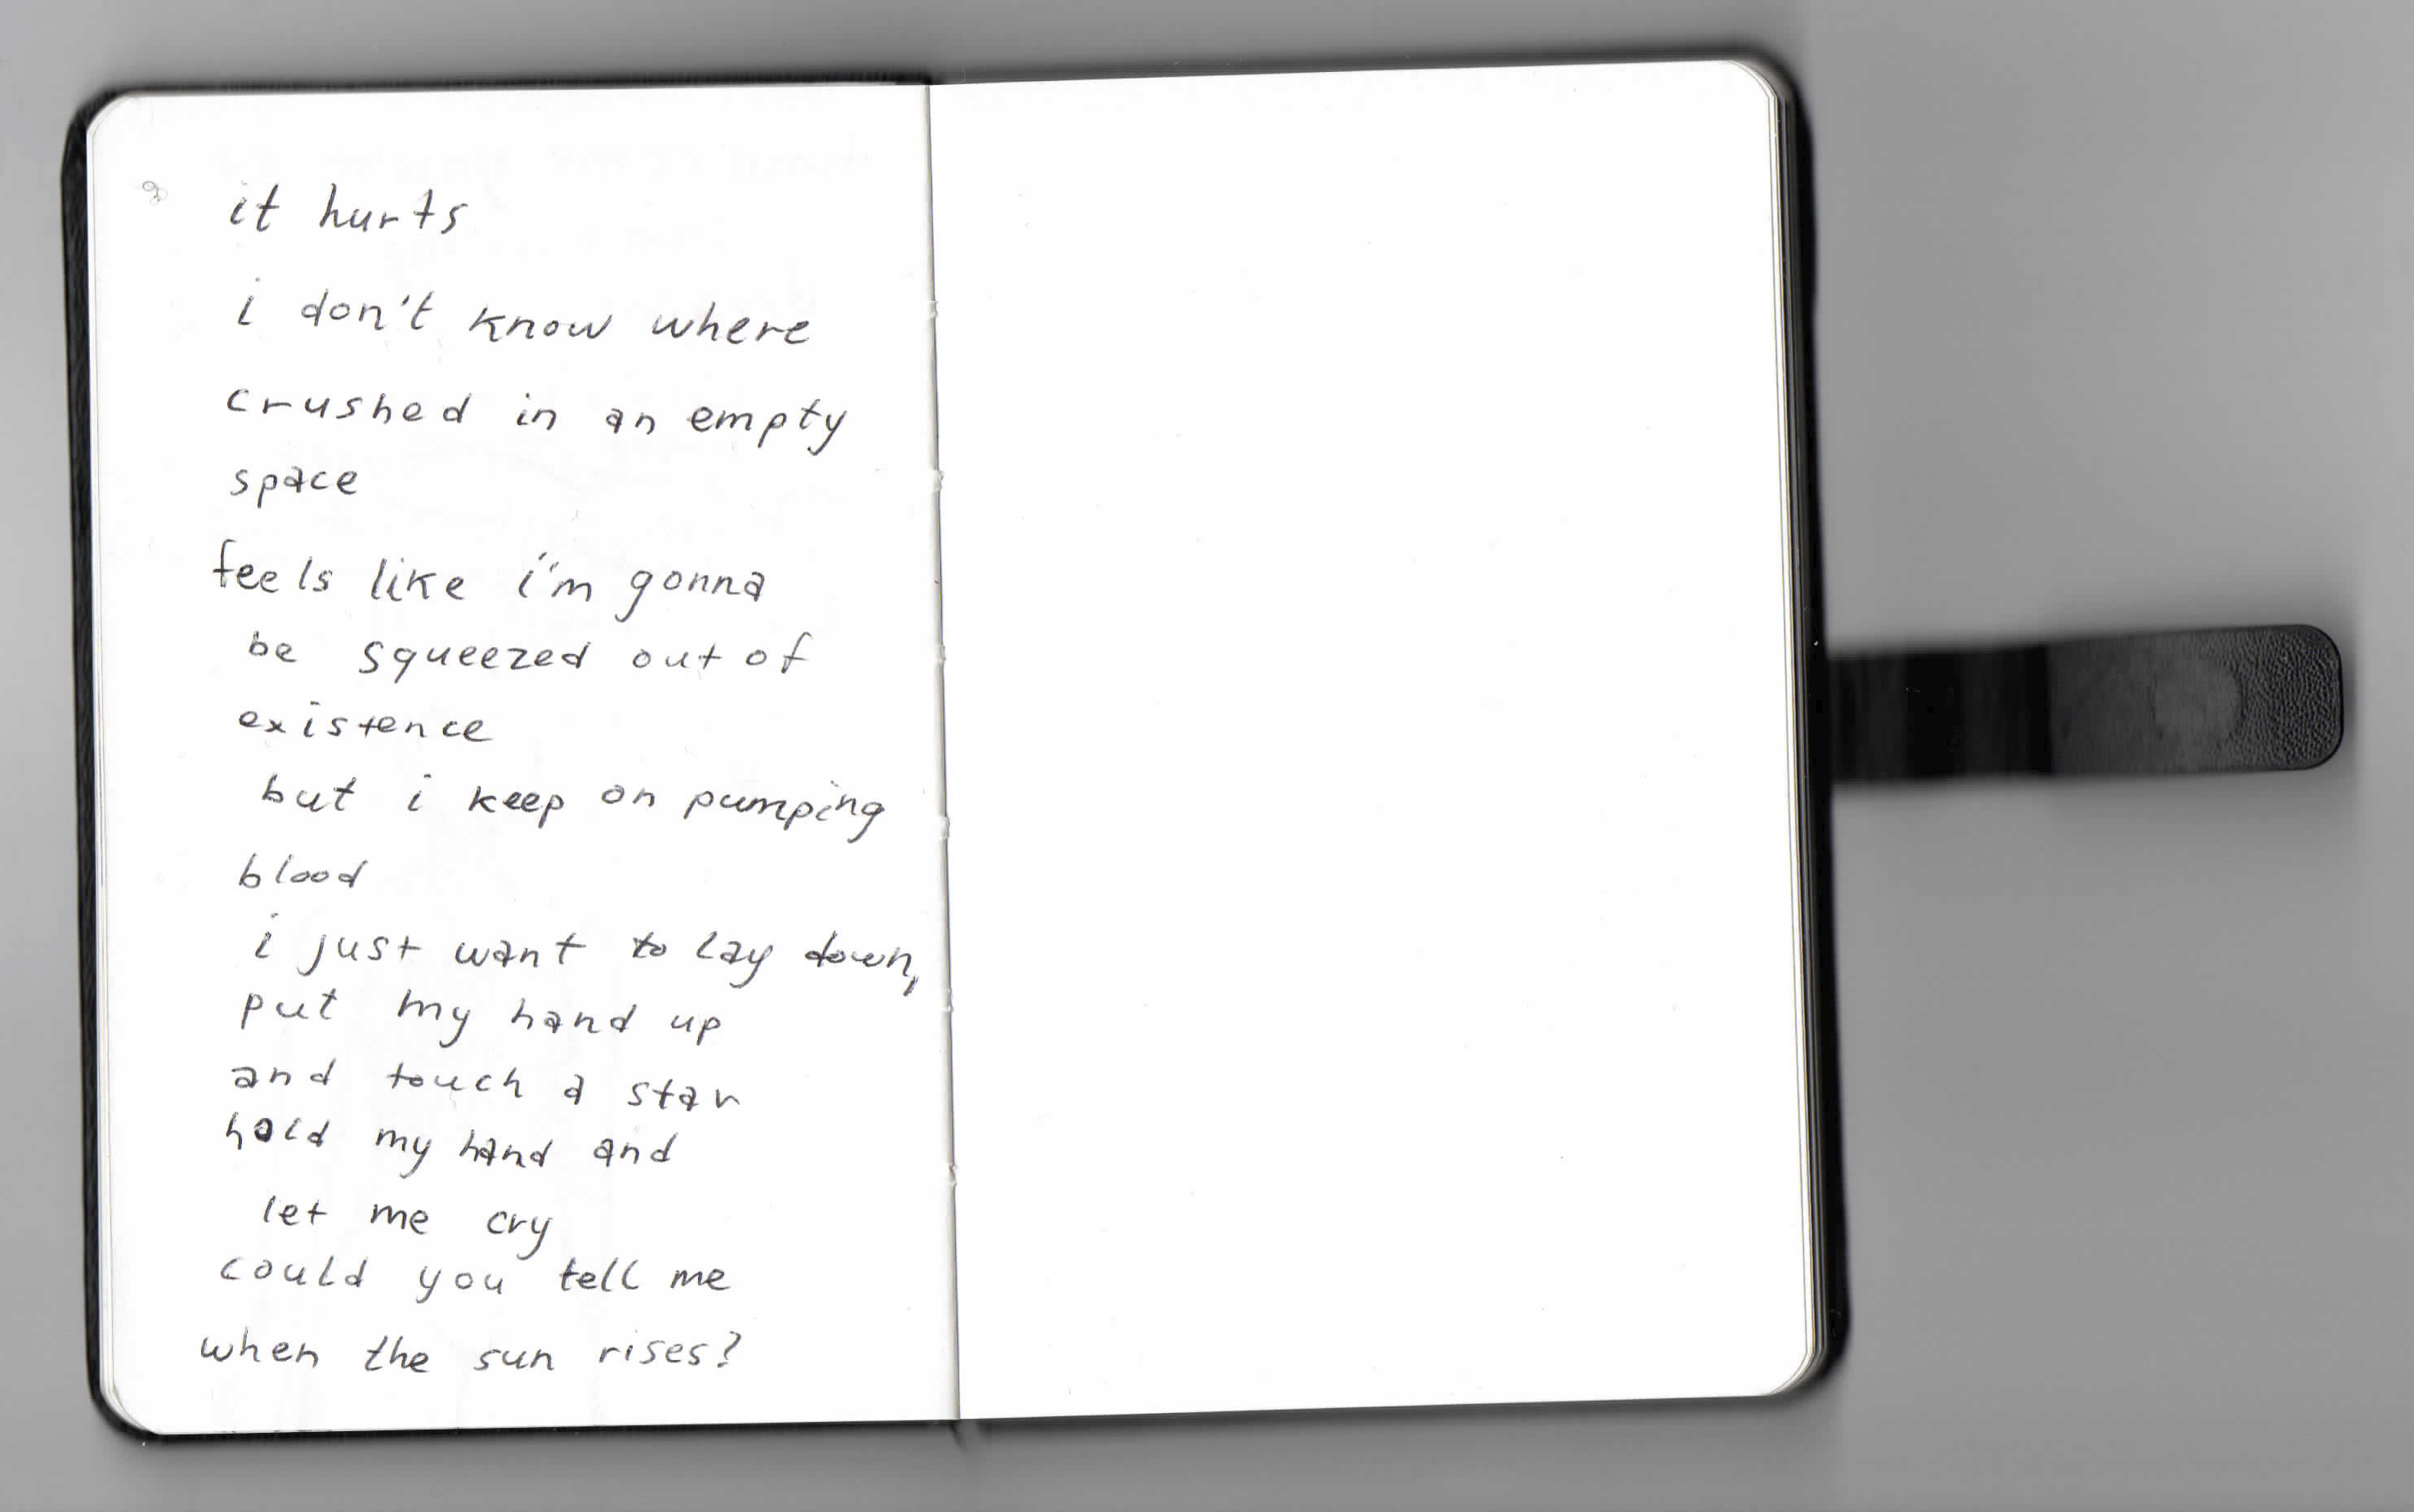 it hurts
i don't know where
crushed in an empty
space
feels like i'm gonna
be squeezed out of
existence
but i keep on pumping
blood
i just want to lay down,
put my hand up
and touch a star
hold my hand and
let me cry
could you tell me
when the sun rises?